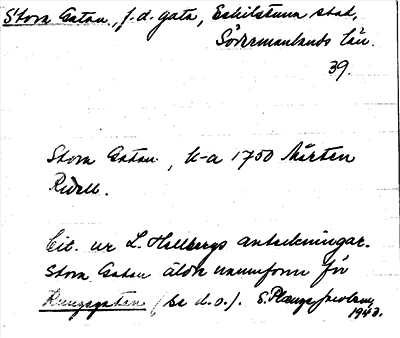 Stora Gatan, f.d. gata, Eskilstuna stad,
Södermanlands län.
39.
Stora Gatan, k-a 1750 Mårten
Ridell.
Cit. ur L. Hellbergs anteckningar.
Stora Gatan äldre namnform för
Kungsgatan (se d.o.). S.
1943.